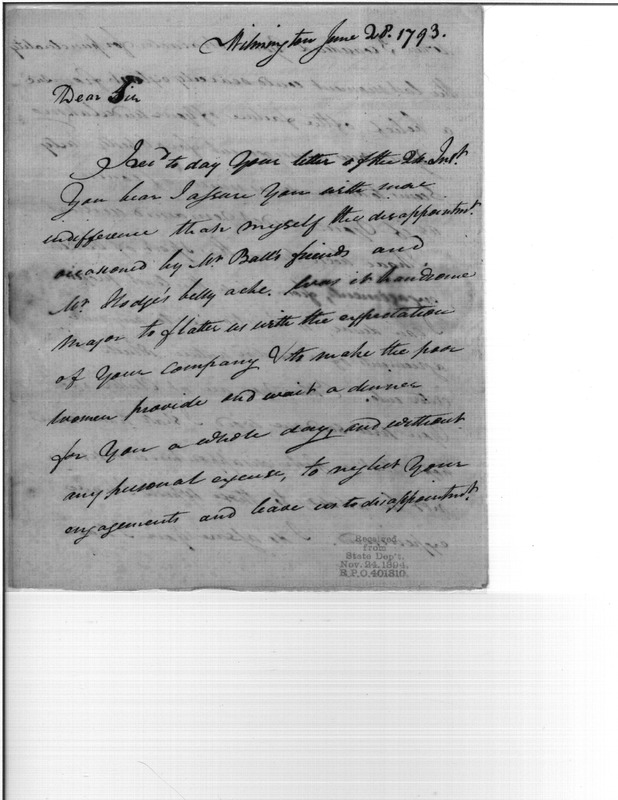 Wilmington June 28. 1793.
Dear Sir
I recd to day Your letter of the 24 Inst.
You bear I assure You with more
indifference than myself the disappointmt.
occasioned by Mr Ball's friends and
Mr Hodge's belly ache. Was it handsome
Major to flatter us with the expectation
of Your company & to make the poor
women provide and wait a dinner
for You a whole day, and without
any personal excuse, to neglect Your
engagements and leave us to disappointmt.
Received
from
State Dep't.
Nov. 24, 1894.
R.P.O. 401310.